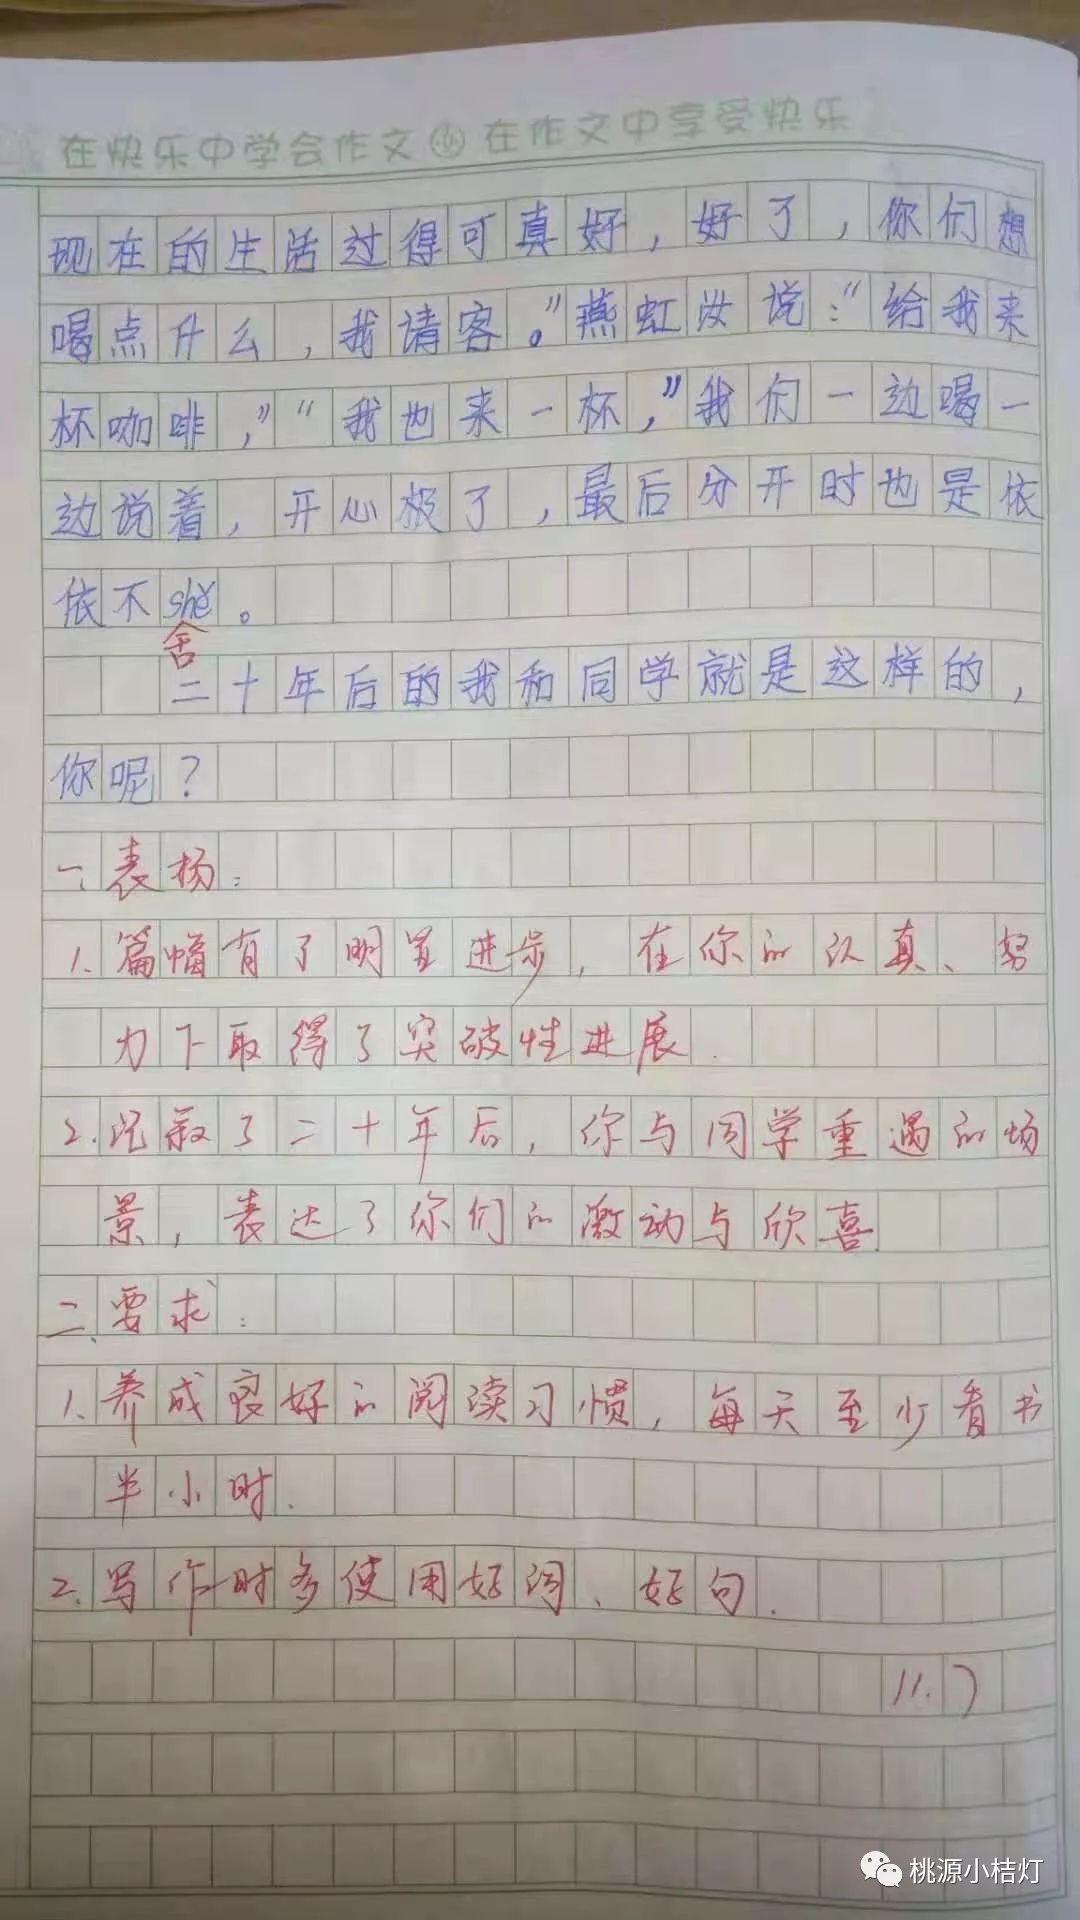 在快乐中学会作文 在作文中享受快乐
现在的生活过得可真好，好了，你们想
喝点什么，我请客。”燕虹汝说：“给我来
杯咖啡，”“我也来一杯，”我们一边喝一
边说着，开心极了，最后分开时也是依
依不shě。
舍
二十年后的我和同学就是这样的，
你呢？
一、表扬：
1.篇幅有了明显进步，在你的认真、努
力下取得了突破性进展.
2.记叙了二十年后，你与同学重遇的场
景，表达了你们的激动与欣喜
二、要求：
1.养成良好的阅读习惯，每天至少看书
半小时.
2.写作时多使用好词、好句.
11.7
桃源小桔灯